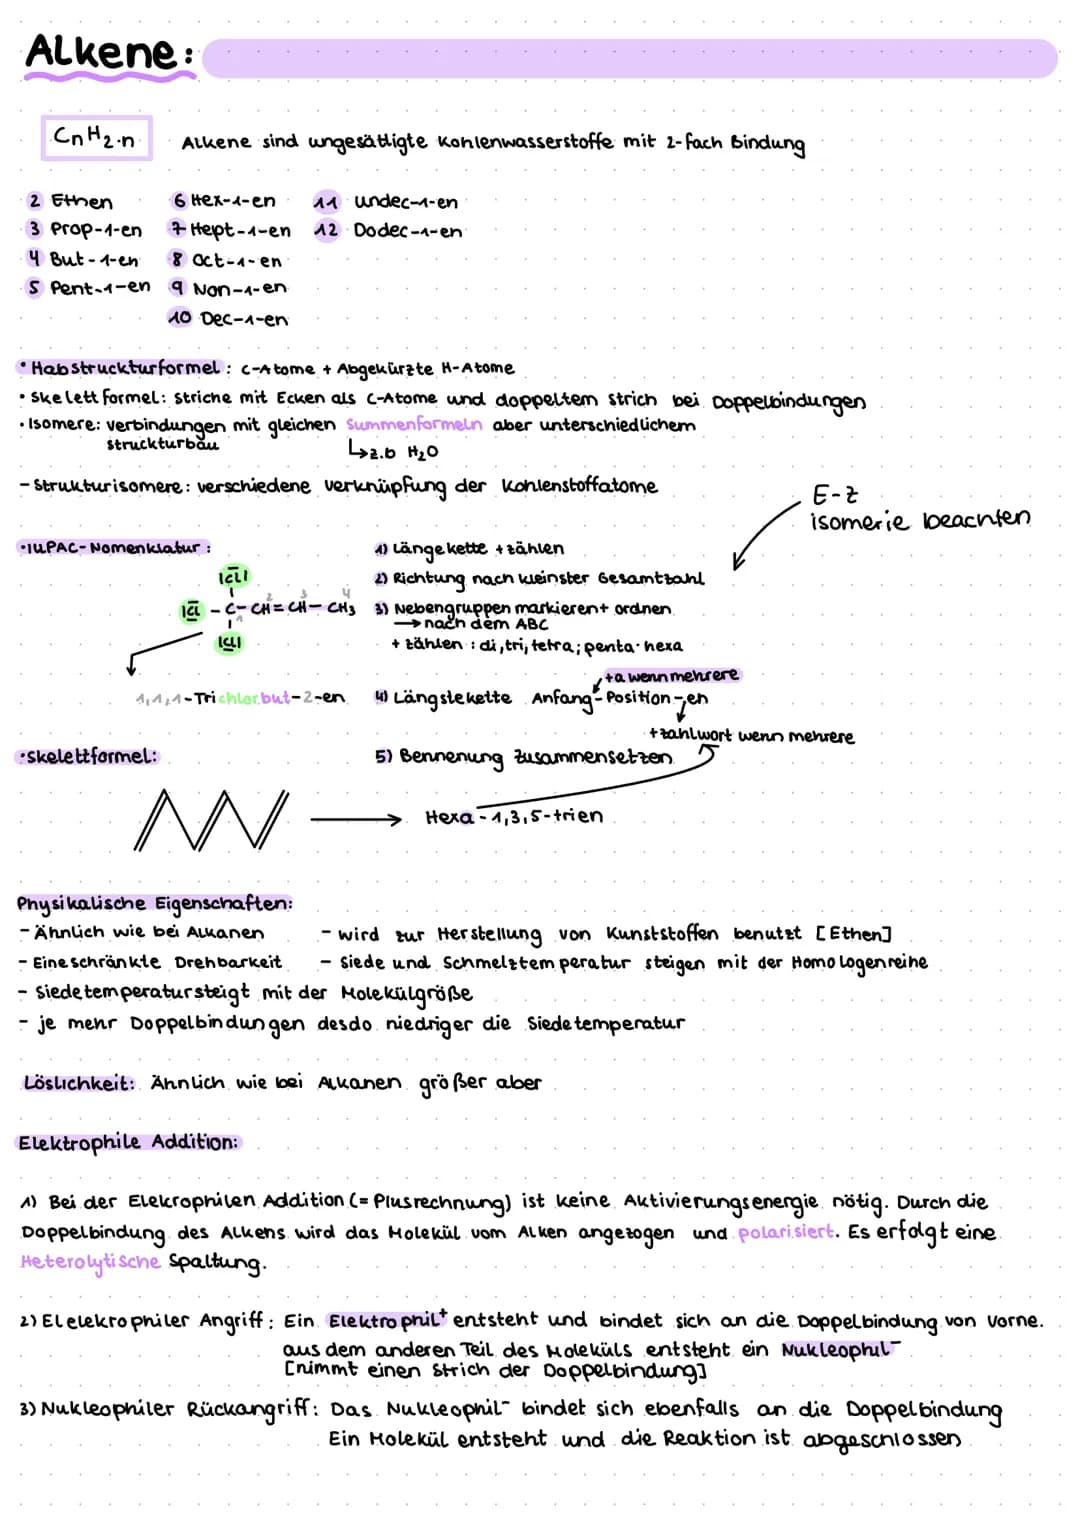 Alkene:
CnH2·n
Alkene sind ungesättigte Kohlenwasserstoffe mit 2-fach Bindung
2 Ethen 6 Hex-1-en 11 undec-1-en
3 Prop-1-en 7 Hept-1-en 12 Dodec-1-en
4 But-1-en 8 Oct-1-en
5 Pent-1-en 9 Non-1-en
10 Dec-1-en
• Habstruckturformel: C-Atome + Abgekürzte H-Atome
• Skelettformel: Striche mit Ecken als C-Atome und doppeltem Strich bei Doppelbindungen
• Isomere: Verbindungen mit gleichen Summenformeln aber unterschiedlichem
struckturbau
↳z.b H2O
- Strukturisomere: verschiedene Verknüpfung der Kohlenstoffatome
E-Z
isomerie beachten
• IUPAC-Nomenklatur:
1) Länge kette + zählen
|Cl|
2) Richtung nach kleinster Gesamtzahl
|Cl - C - CH = CH - CH3
1 2 3 4
3) Nebengruppen markieren + ordnen
→ nach dem ABC
|Cl|
+ zählen: di, tri, tetra; penta· hexa
+a wenn mehrere
1,1,1-Trichlorbut-2-en
4) Längste kette Anfang - Position - en
+ zahlwort wenn mehrere
• Skelettformel:
5) Bennenung zusammensetzen
Hexa-1,3,5-trien
Physikalische Eigenschaften:
- Ähnlich wie bei Alkanen - wird zur Herstellung von Kunststoffen benutzt [Ethen]
- Eineschränkte Drehbarkeit - Siede und Schmelztemperatur steigen mit der Homologenreihe
- Siedetemperatur steigt mit der Molekülgröße
- je mehr Doppelbindungen desdo niedriger die Siedetemperatur
Löslichkeit: Ähnlich wie bei Alkanen größer aber
Elektrophile Addition:
1) Bei der Elekrophilen Addition (= Plusrechnung) ist keine Aktivierungsenergie nötig. Durch die
Doppelbindung des Alkens wird das Molekül vom Alken angezogen und polarisiert. Es erfolgt eine
Heterolytische Spaltung.
2) Elelekrophiler Angriff: Ein Elektrophil⁺ entsteht und bindet sich an die Doppelbindung von Vorne.
aus dem anderen Teil des Moleküls entsteht ein Nukleophil⁻
[nimmt einen Strich der Doppelbindung]
3) Nukleophiler Rückangriff: Das Nukleophil⁻ bindet sich ebenfalls an die Doppelbindung
Ein Molekül entsteht und die Reaktion ist abgeschlossen